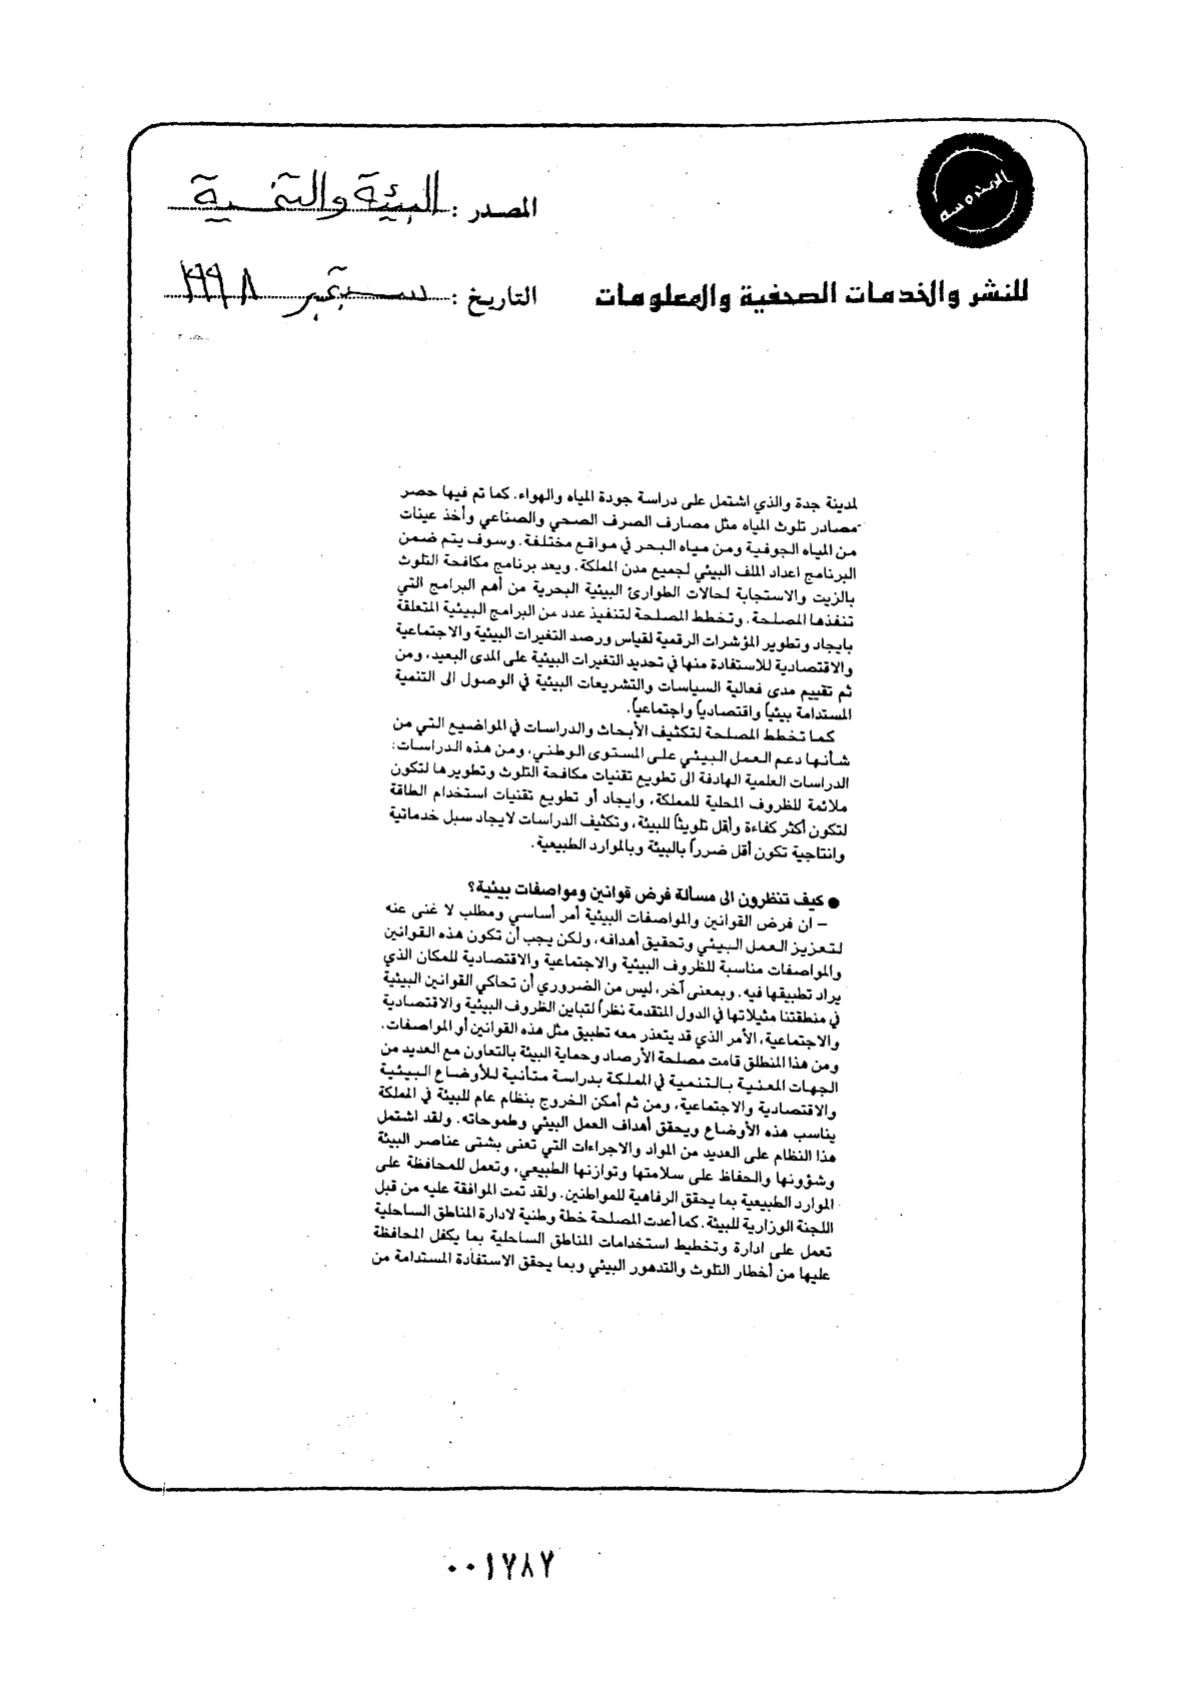 المصدر : البيئة والتنمية
للنشر والخدمات الصحفية والمعلومات
التاريخ : سبتمبر ١٩٩٨
لمدينة جدة والذي اشتمل على دراسة جودة المياه والهواء. كما تم فيها حصر
مصادر تلوث المياه مثل مصارف الصرف الصحي والصناعي وأخذ عينات
من المياه الجوفية ومن مياه البحر في مواقع مختلفة. وسوف يتم ضمن
البرنامج اعداد الملف البيئي لجميع مدن المملكة. ويعد برنامج مكافحة التلوث
بالزيت والاستجابة لحالات الطوارئ البيئية البحرية من أهم البرامج التي
تنفذها المصلحة. وتخطط المصلحة لتنفيذ عدد من البرامج البيئية المتعلقة
بايجاد وتطوير المؤشرات الرقمية لقياس ورصد التغيرات البيئية والاجتماعية
والاقتصادية للاستفادة منها في تحديد التغيرات البيئية على المدى البعيد، ومن
ثم تقييم مدى فعالية السياسات والتشريعات البيئية في الوصول الى التنمية
المستدامة بيئياً واقتصادياً واجتماعياً.
كما تخطط المصلحة لتكثيف الأبحاث والدراسات في المواضيع التي من
شأنها دعم العمل البيئي على المستوى الوطني، ومن هذه الدراسات:
الدراسات العلمية الهادفة الى تطويع تقنيات مكافحة التلوث وتطويرها لتكون
ملائمة للظروف المحلية للمملكة، وايجاد أو تطويع تقنيات استخدام الطاقة
لتكون أكثر كفاءة وأقل تلويثاً للبيئة، وتكثيف الدراسات لايجاد سبل خدماتية
وانتاجية تكون أقل ضرراً بالبيئة وبالموارد الطبيعية.
● كيف تنظرون الى مسألة فرض قوانين ومواصفات بيئية؟
– ان فرض القوانين والمواصفات البيئية أمر أساسي ومطلب لا غنى عنه
لتعزيز العمل البيئي وتحقيق أهدافه، ولكن يجب أن تكون هذه القوانين
والمواصفات مناسبة للظروف البيئية والاجتماعية والاقتصادية للمكان الذي
يراد تطبيقها فيه. وبمعنى آخر، ليس من الضروري أن تحاكي القوانين البيئية
في منطقتنا مثيلاتها في الدول المتقدمة نظراً لتباين الظروف البيئية والاقتصادية
والاجتماعية، الأمر الذي قد يتعذر معه تطبيق مثل هذه القوانين أو المواصفات.
ومن هذا المنطلق قامت مصلحة الأرصاد وحماية البيئة بالتعاون مع العديد من
الجهات المعنية بالتنمية في المملكة بدراسة متأنية للأوضاع البيئية
والاقتصادية والاجتماعية، ومن ثم أمكن الخروج بنظام عام للبيئة في المملكة
يناسب هذه الأوضاع ويحقق أهداف العمل البيئي وطموحاته. ولقد اشتمل
هذا النظام على العديد من المواد والاجراءات التي تعنى بشتى عناصر البيئة
وشؤونها والحفاظ على سلامتها وتوازنها الطبيعي، وتعمل للمحافظة على
الموارد الطبيعية بما يحقق الرفاهية للمواطنين. ولقد تمت الموافقة عليه من قبل
اللجنة الوزارية للبيئة. كما أعدت المصلحة خطة وطنية لادارة المناطق الساحلية
تعمل على ادارة وتخطيط استخدامات المناطق الساحلية بما يكفل المحافظة
عليها من أخطار التلوث والتدهور البيئي وبما يحقق الاستفادة المستدامة من
٠٠١٧٨٧